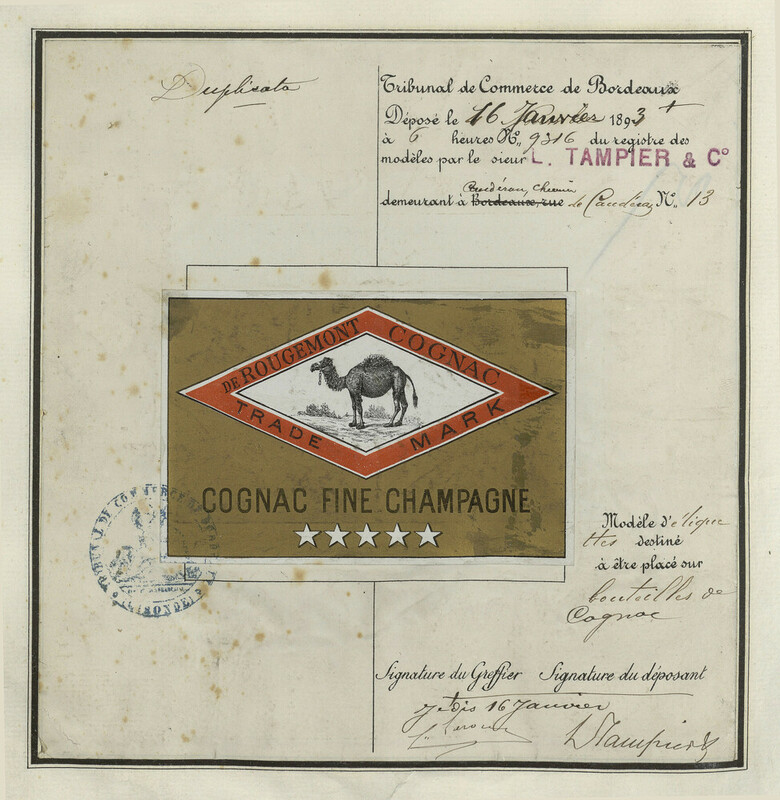 Duplicata
Tribunal de Commerce de Bordeaux
Déposé le 16 Janvier 1893
à 6 heures N° 9316 du registre des
modèles par le sieur L. TAMPIER & C°
Caudéran, chemin
demeurant à Bordeaux, rue de Caudéran N° 13
DE ROUGEMONT COGNAC
TRADE MARK
COGNAC FINE CHAMPAGNE
TRIBUNAL DE COMMERCE
(GIRONDE)
Modèle d'étique
ttes destiné
à être placé sur
bouteilles de
Cognac
Signature du Greffier Signature du déposant
16 Janvier
L Tampier